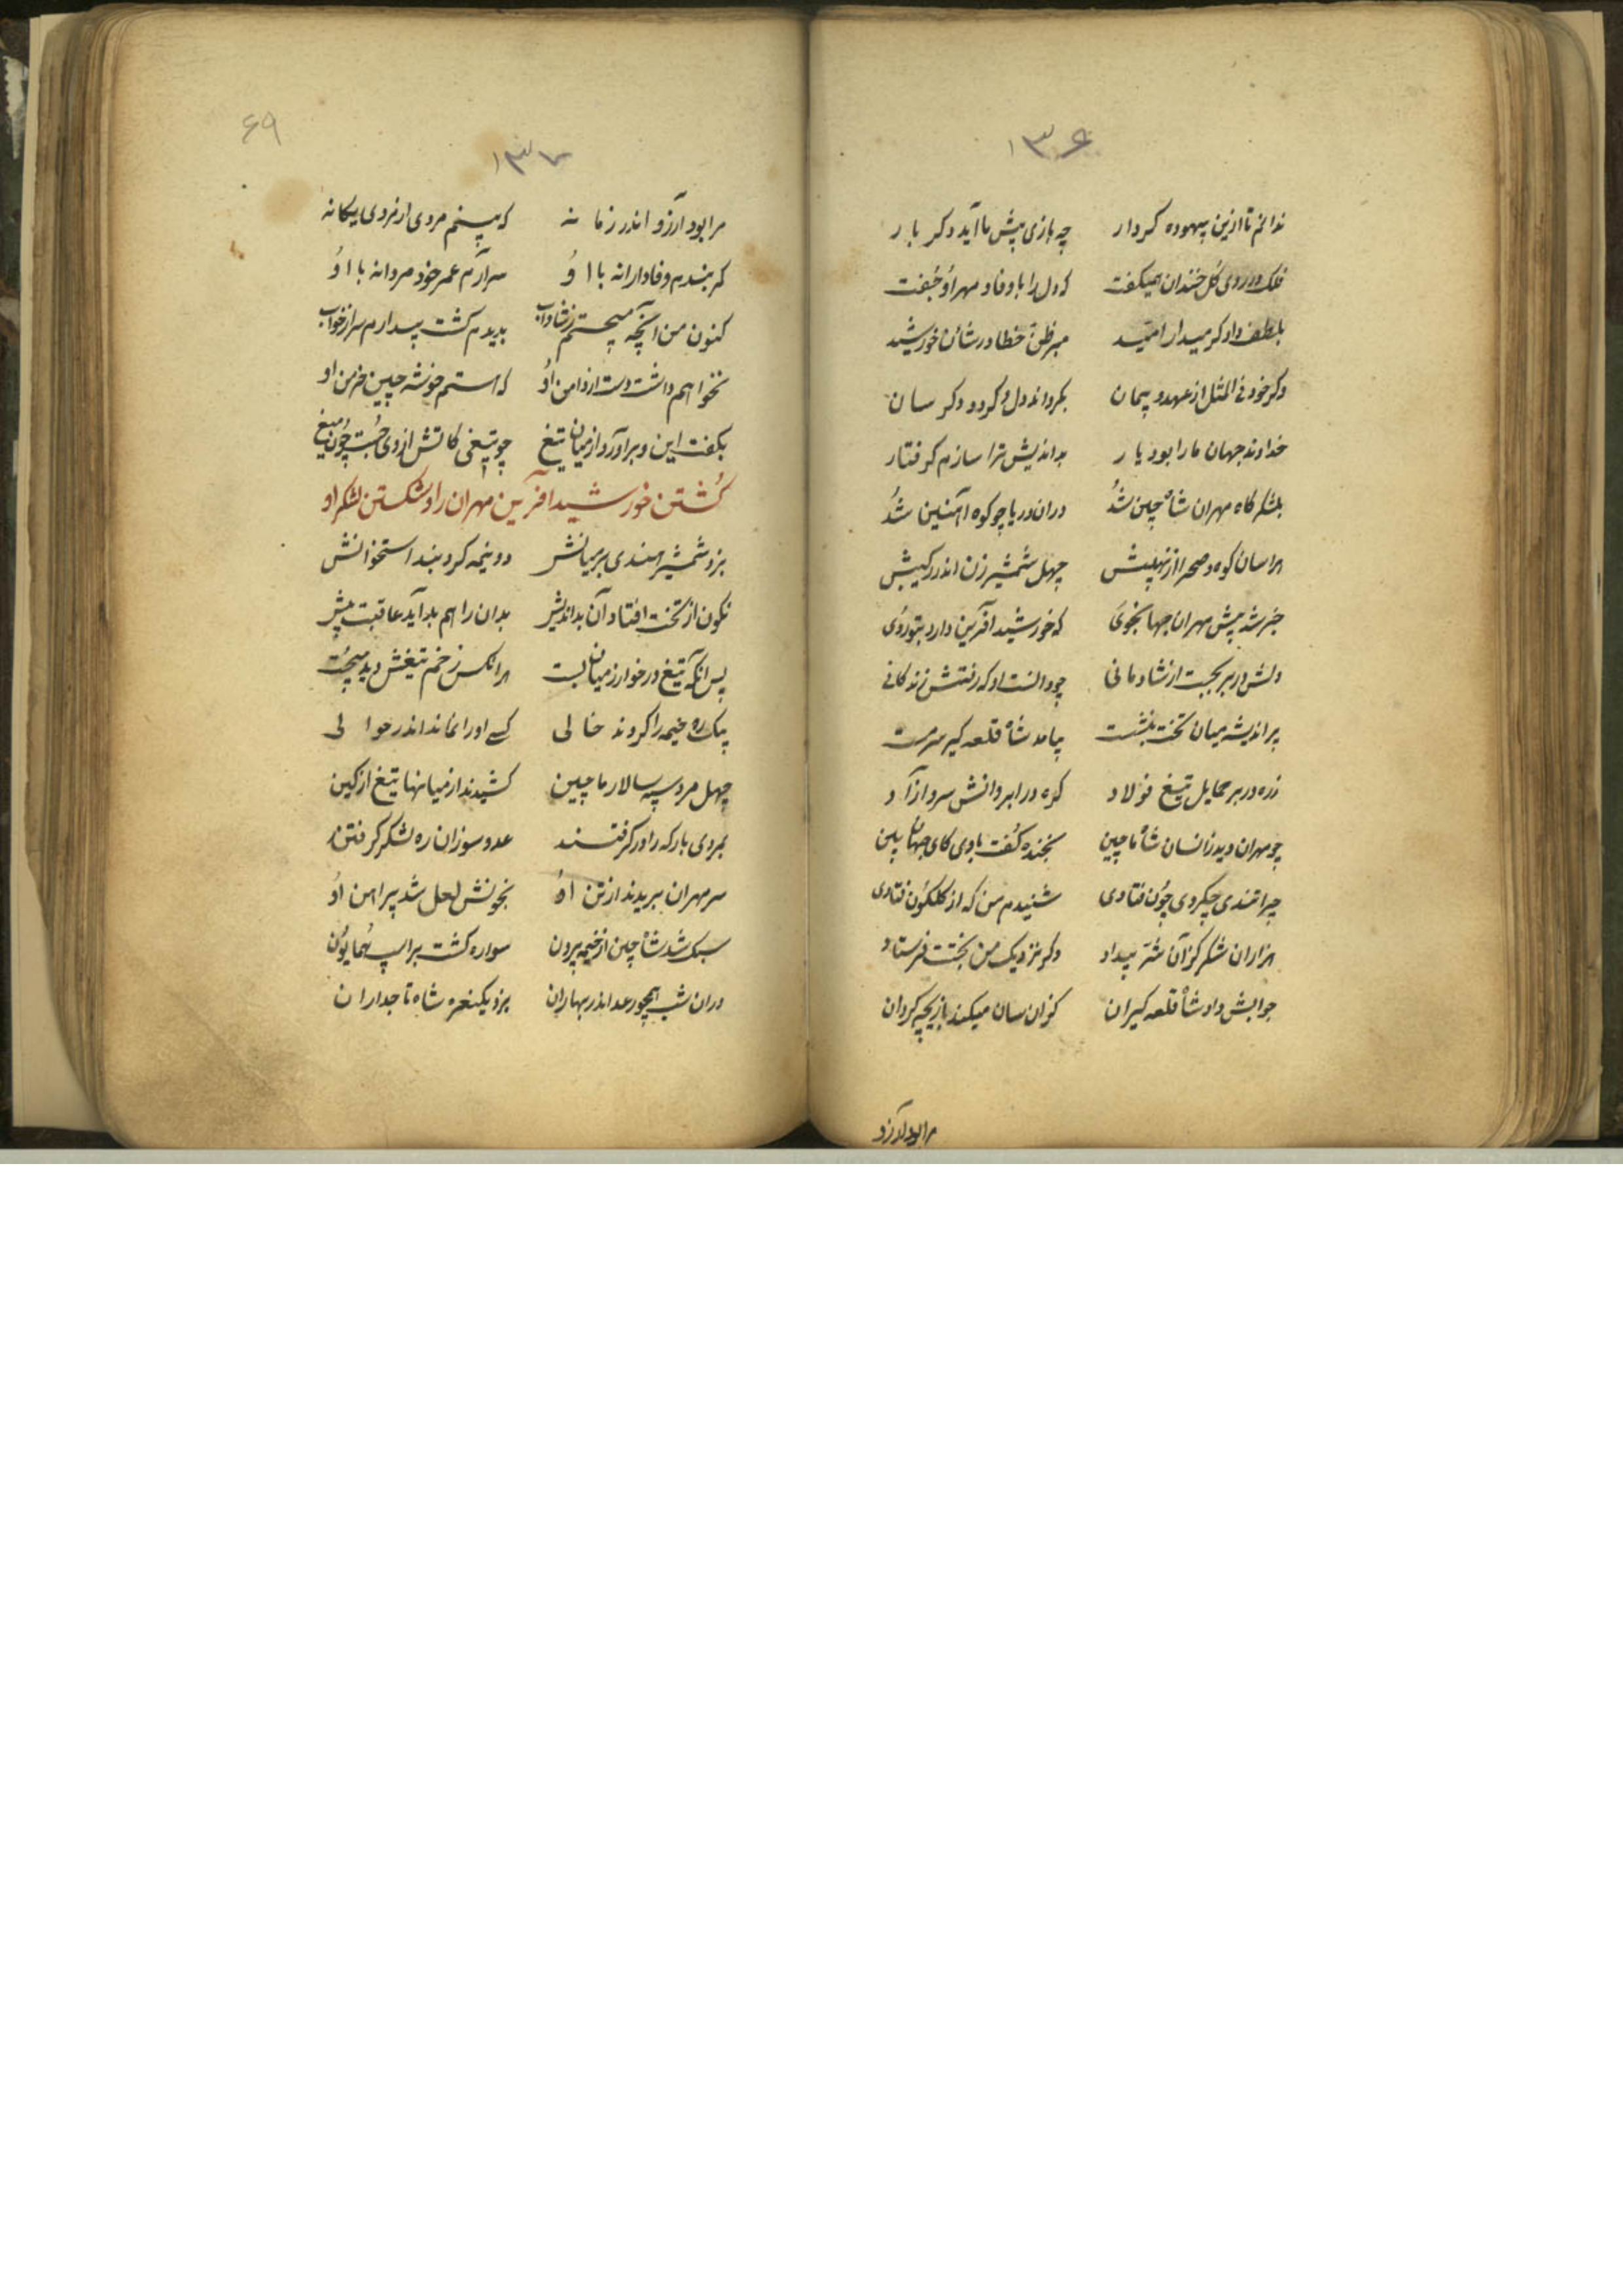 ۱۳۶
ندانم تا ازین بیهوده کردار چه بازی پیش ما آید دکر بار
فلک در روی کل خندان همیکفت که دل را با وفا و مهر او جفت
بلطف داد کر میدار امید مبر ظن خطا در شان خورشید
وکر خود فی المثل از عهد و پیمان بکرداند دل و کردد دکر سان
خداوند جهان ما را بود یار بداندیش ترا سازم کرفتار
بلشکرکاه مهران شاه چین شد دران دریا چو کوه آهنین شد
هراسان کوه و صحرا از نهیبش چهل شمشیر زن اندر رکیبش
خبر شد پیش مهران جهانجوی که خورشید آفرین دارد بتو روی
دلش در بر بجست از شادمانی چو دانست او که رفتش زندکانی
پر اندیشه میان تخت بنشست بیامد شاه قلعه کیر سرمست
زره در بر حمایل تیغ فولاد کره در ابروانش سرو آزاد
چو مهران دید زانسان شاه ماچین بخنده کفت با وی کای جهان بین
چرا تندی چکردی چون فتادی شنیدم من که از کلکون فتادی
هزاران شکر کز آن شر بیداد دکر نزدیک من بختت فرستاد
جوابش داد شاه قلعه کیران کزان سان میکند بازیچه کردان
مرا بود آرزو
۶۹
۱۳۷
مرا بود آرزو اندر زمانه که بینم مردی از فردی یکانه
کمر بندم وفادارانه با او سر آرم عمر خود مردانه با او
کنون من آنچه میجستم ز شاداب بدیدم کشت بیدارم سر از خواب
نخواهم داشت دست از دامن او که هستم خوشه چین خرمن او
بکفت این و برآورد از میان تیغ چو تیغی کاتش از وی جست چون میغ
کشتن خورشید آفرین مهران را و شکستن لشکر او
بزد شمشیر هندی بر میانش دو نیمه کرد بند استخوانش
نکون از تخت افتاد آن بداندیش بدان را هم بد آید عاقبت پیش
پس آنکه تیغ در خوارزمیان بست هر آنکس زخم تیغش دید میجست
بیک ره خیمه را کردند خالی کسی او را نماند اندر حوالی
چهل مرد سپهسالار ماچین کشیدند از میانها تیغ از کین
بمردی بارکه را در کرفتند عدو سوزان ره لشکر کرفتند
سر مهران بریدند از تن او بخونش لعل شد پیراهن او
سبک شد شاه چین از خیمه بیرون سواره کشت بر اسپ همایون
دران شب همچو رعد اندر بهاران بزد یکنعره شاه تاجداران